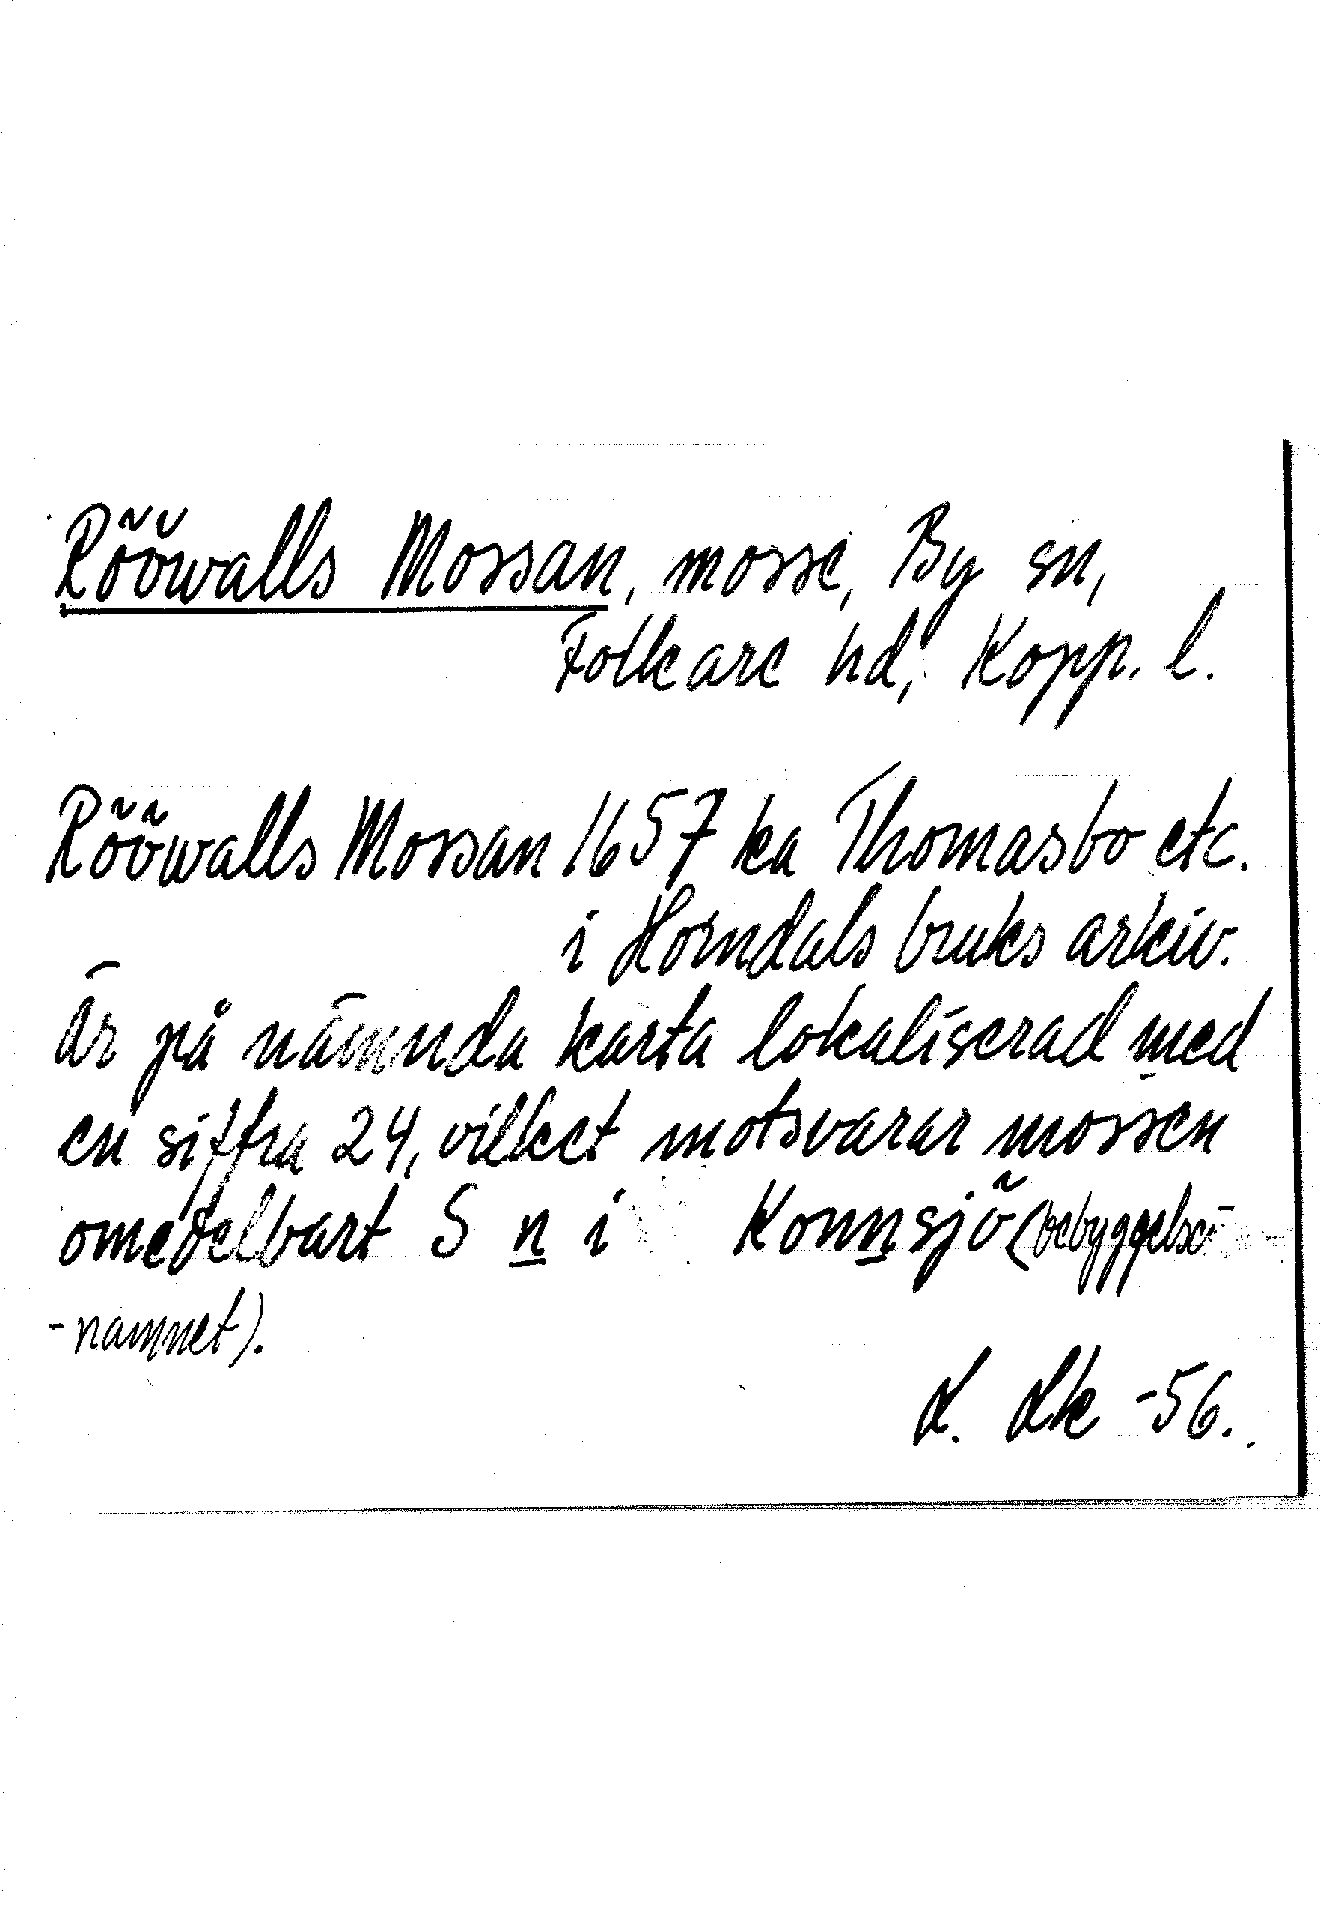 Rööwalls Mossan, mosse, By sn,
Folkare hd, Kopp. l.
Rööwalls Mossan 1657 ka Thomasbo etc.
i Horndals bruks arkiv.
Är på nämnda karta lokaliserad med
en siffra 24, vilket motsvarar mossen
omedelbart S n i Konnsjö (bebyggelse-
-namnet).
L. Lk -56.